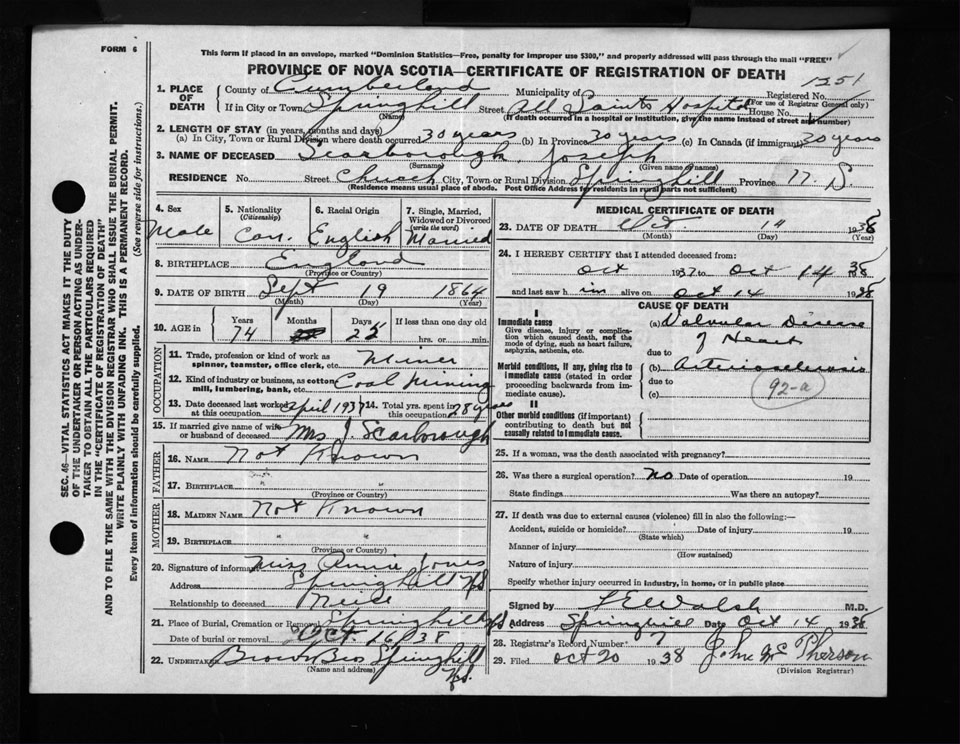 FORM 6
This form if placed in an envelope, marked "Dominion Statistics—Free, penalty for improper use $300," and properly addressed will pass through the mail "FREE"
PROVINCE OF NOVA SCOTIA—CERTIFICATE OF REGISTRATION OF DEATH
1251
1. PLACE OF DEATH
County of Cumberland Municipality of Registered No.
(For use of Registrar General only)
If in City or Town Springhill Street All Saints Hospital House No.
(Name) (If death occurred in a hospital or institution, give the name instead of street and number)
2. LENGTH OF STAY (in years, months and days)
(a) In City, Town or Rural Division where death occurred 30 years (b) In Province 30 years (c) In Canada (if immigrant) 30 years
3. NAME OF DECEASED Scarborough, Joseph
(Surname) (Given name or names)
RESIDENCE No. Street Church City, Town or Rural Division Springhill Province N. S.
(Residence means usual place of abode. Post Office Address for residents in rural parts not sufficient)
4. Sex Male
5. Nationality (Citizenship) Can.
6. Racial Origin English
7. Single, Married, Widowed or Divorced (write the word) Married
8. BIRTHPLACE England
(Province or Country)
9. DATE OF BIRTH Sept 19 1864
(Month) (Day) (Year)
10. AGE in Years Months Days If less than one day old
74 25 hrs. or min.
OCCUPATION
11. Trade, profession or kind of work as spinner, teamster, office clerk, etc. Miner
12. Kind of industry or business, as cotton mill, lumbering, bank, etc. Coal Mining
13. Date deceased last worked at this occupation April 1937 14. Total yrs. spent in this occupation 28 years
15. If married give name of wife or husband of deceased Mrs J. Scarborough
FATHER
16. NAME Not Known
17. BIRTHPLACE
(Province or Country)
MOTHER
18. MAIDEN NAME Not Known
19. BIRTHPLACE " "
(Province or Country)
20. Signature of informant Miss Annie Jones
Address Springhill NS
Relationship to deceased Neice
21. Place of Burial, Cremation or Removal Springhill NS
Date of burial or removal Oct. 16/38
22. UNDERTAKER Brown Bros Springhill NS.
(Name and address)
MEDICAL CERTIFICATE OF DEATH
23. DATE OF DEATH Oct. 1938
(Month) (Day) (Year)
24. I HEREBY CERTIFY that I attended deceased from:
Oct 1937 to Oct 14 1938
and last saw him alive on Oct 14 1938
CAUSE OF DEATH
I
Immediate cause
Give disease, injury or complication which caused death, not the mode of dying, such as heart failure, asphyxia, asthenia, etc.
(a) Valvular Disease
of Heart
due to
Morbid conditions, if any, giving rise to immediate cause (stated in order proceeding backwards from immediate cause).
(b) Arteriosclerosis
due to 92-a
(c)
II
Other morbid conditions (if important) contributing to death but not causally related to immediate cause.
25. If a woman, was the death associated with pregnancy?
26. Was there a surgical operation? no Date of operation 19
State findings Was there an autopsy?
27. If death was due to external causes (violence) fill in also the following:—
Accident, suicide or homicide? Date of injury 19
(State which)
Manner of injury
(How sustained)
Nature of injury
Specify whether injury occurred in industry, in home, or in public place
Signed by F E Walsh M.D.
Address Springhill Date Oct 14 1938
28. Registrar's Record Number 7
29. Filed Oct 20 1938 John McPherson
(Division Registrar)
SEC. 46—VITAL STATISTICS ACT MAKES IT THE DUTY
OF THE UNDERTAKER OR PERSON ACTING AS UNDER-
TAKER TO OBTAIN ALL THE PARTICULARS REQUIRED
IN THE "CERTIFICATE OF REGISTRATION OF DEATH"
AND TO FILE THE SAME WITH THE DIVISION REGISTRAR WHO SHALL ISSUE THE BURIAL PERMIT.
WRITE PLAINLY WITH UNFADING INK. THIS IS A PERMANENT RECORD.
Every item of information should be carefully supplied. (See reverse side for instructions.)